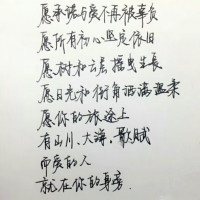 愿承诺与爱不再被辜负
愿所有初心坚定依旧
愿树和云层摇曳生长
愿日光和街角洒满温柔
愿你的旅途上
有山川、大海、歌赋
而爱的人
就在你的身旁.